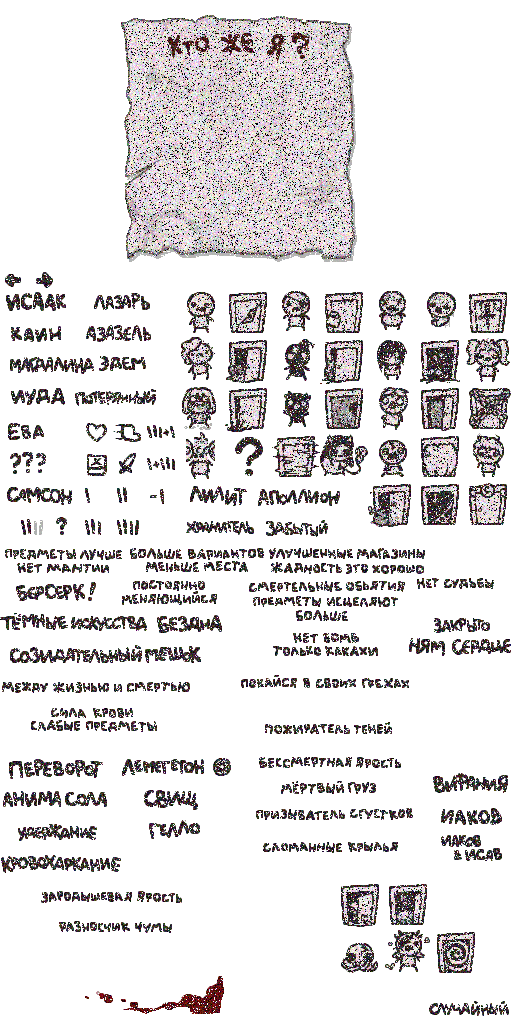 КТО ЖЕ Я?
ИСААК ЛАЗАРЬ
КАИН АЗАЗЕЛЬ
МАГДАЛИНА ЭДЕМ
ИУДА ПОТЕРЯННЫЙ
ЕВА
???
САМСОН
ЛИЛИТ АПОЛЛИОН
?
ХРАНИТЕЛЬ ЗАБЫТЫЙ
ПРЕДМЕТЫ ЛУЧШЕ БОЛЬШЕ ВАРИАНТОВ УЛУЧШЕННЫЕ МАГАЗИНЫ
НЕТ МАНТИИ МЕНЬШЕ МЕСТА ЖАДНОСТЬ ЭТО ХОРОШО
БЕРСЕРК!
ПОСТОЯННО
МЕНЯЮЩИЙСЯ
СМЕРТЕЛЬНЫЕ ОБЪЯТИЯ НЕТ СУДЬБЫ
ПРЕДМЕТЫ ИСЦЕЛЯЮТ
БОЛЬШЕ
ТЁМНЫЕ ИСКУССТВА БЕЗДНА
ЗАКРЫТО
НЕТ БОМБ
ТОЛЬКО КАКАХИ
НЯМ СЕРДЦЕ
СОЗИДАТЕЛЬНЫЙ МЕШОК
МЕЖДУ ЖИЗНЬЮ И СМЕРТЬЮ
ПОКАЙСЯ В СВОИХ ГРЕХАХ
СИЛА КРОВИ
СЛАБЫЕ ПРЕДМЕТЫ
ПОЖИРАТЕЛЬ ТЕНЕЙ
ПЕРЕВОРОТ ЛЕМЕГЕТОН
БЕССМЕРТНАЯ ЯРОСТЬ
МЁРТВЫЙ ГРУЗ
ВИФАНИЯ
АНИМА СОЛА СВИЩ
ПРИЗЫВАТЕЛЬ СГУСТКОВ
ИАКОВ
УДЕРЖАНИЕ ГЕЛЛО
СЛОМАННЫЕ КРЫЛЬЯ
ИАКОВ
& ИСАВ
КРОВОХАРКАНИЕ
ЗАРОДЫШЕВАЯ ЯРОСТЬ
РАЗНОСЧИК ЧУМЫ
СЛУЧАЙНЫЙ